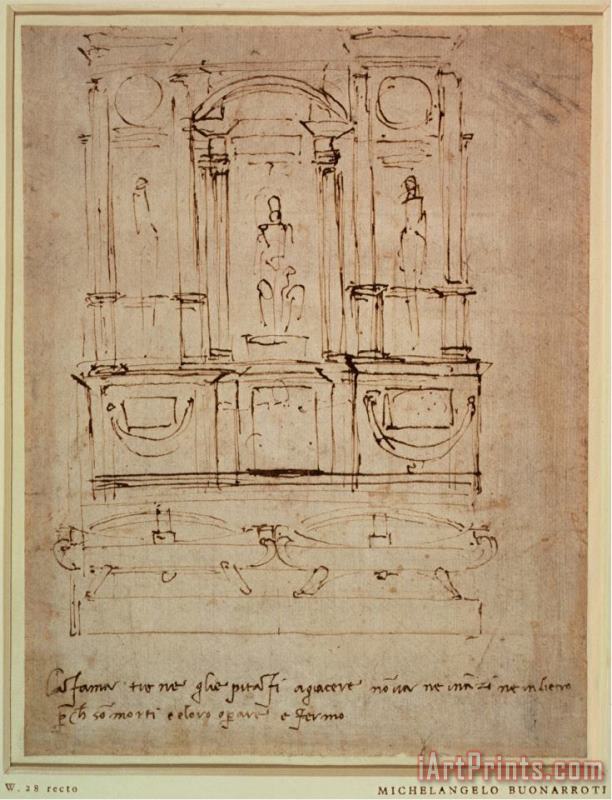 La fama tiene gli epitafi a giacere no va ne inanzi ne indietro
p ch so morti e eloro operare e fermo
W. 28 recto
MICHELANGELO BUONARROTI
iArtPrints.com